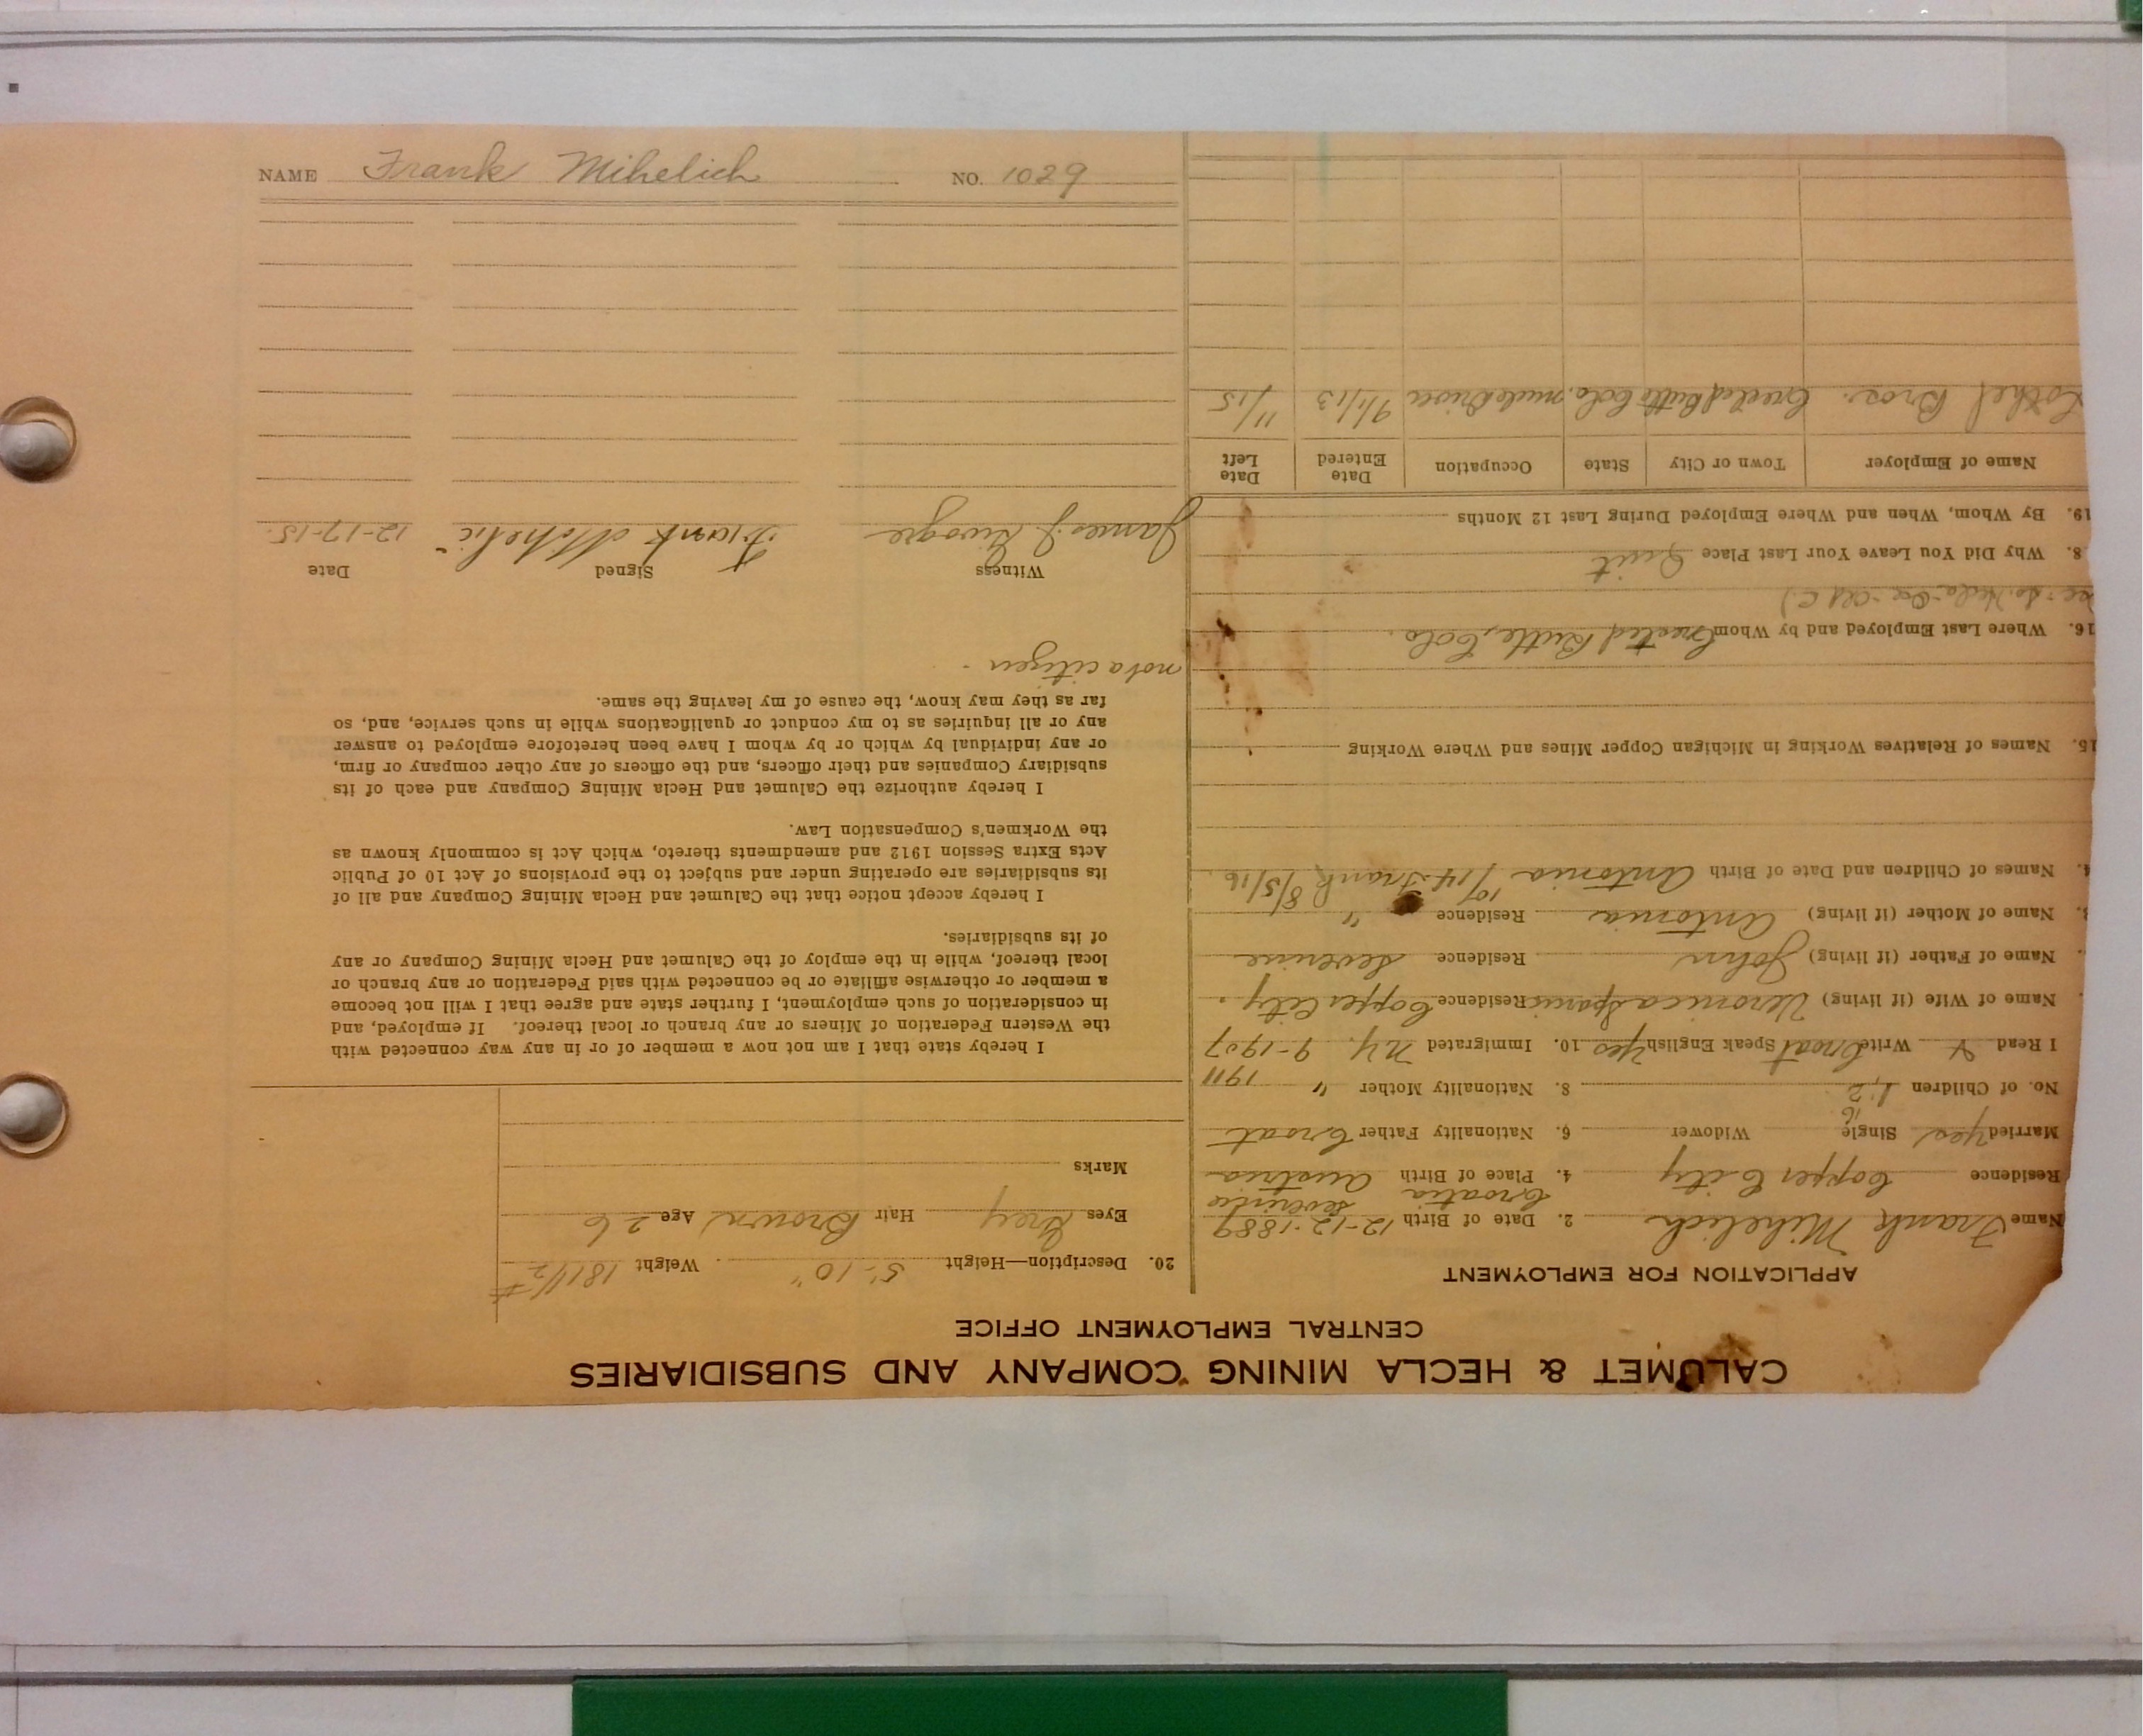 CALUMET & HECLA MINING COMPANY AND SUBSIDIARIES
CENTRAL EMPLOYMENT OFFICE
APPLICATION FOR EMPLOYMENT
Name Frank Mihelich 2. Date of Birth 12-12-1889
Croatia Severine
Residence Copper City 4. Place of Birth Austria
Married Yes Single Widower 6. Nationality Father Croat
16
No. of Children 1, 2 8. Nationality Mother " 1911
I Read Write Croat Speak English Yes 10. Immigrated N.Y. 9-1907
Name of Wife (if living) Veronica Residence Copper City.
Name of Father (if living) John Residence Severine
Name of Mother (if living) Antonia Residence "
4. Names of Children and Date of Birth Antonia 10/14 Frank 8/5/16
15. Names of Relatives Working in Michigan Copper Mines and Where Working
16. Where Last Employed and by Whom Crested Butte, Colo.
8. Why Did You Leave Your Last Place Quit
19. By Whom, When and Where Employed During Last 12 Months
Name of Employer Town or City State Occupation Date Entered Date Left
Bros. Crested Butte Colo. mule driver 9/1/13 11/15
20. Description—Height 5'-10" Weight 181 1/2 #
Eyes Grey Hair Brown Age 26
Marks
I hereby state that I am not now a member of or in any way connected with
the Western Federation of Miners or any branch or local thereof. If employed, and
in consideration of such employment, I further state and agree that I will not become
a member or otherwise affiliate or be connected with said Federation or any branch or
local thereof, while in the employ of the Calumet and Hecla Mining Company or any
of its subsidiaries.
I hereby accept notice that the Calumet and Hecla Mining Company and all of
its subsidiaries are operating under and subject to the provisions of Act 10 of Public
Acts Extra Session 1912 and amendments thereto, which Act is commonly known as
the Workmen's Compensation Law.
I hereby authorize the Calumet and Hecla Mining Company and each of its
subsidiary Companies and their officers, and the officers of any other company or firm,
or any individual by which or by whom I have been heretofore employed to answer
any or all inquiries as to my conduct or qualifications while in such service, and, so
far as they may know, the cause of my leaving the same.
not a citizen.
Witness Signed Date
James J. Frank 12-17-15.
NAME Frank Mihelich NO. 1029